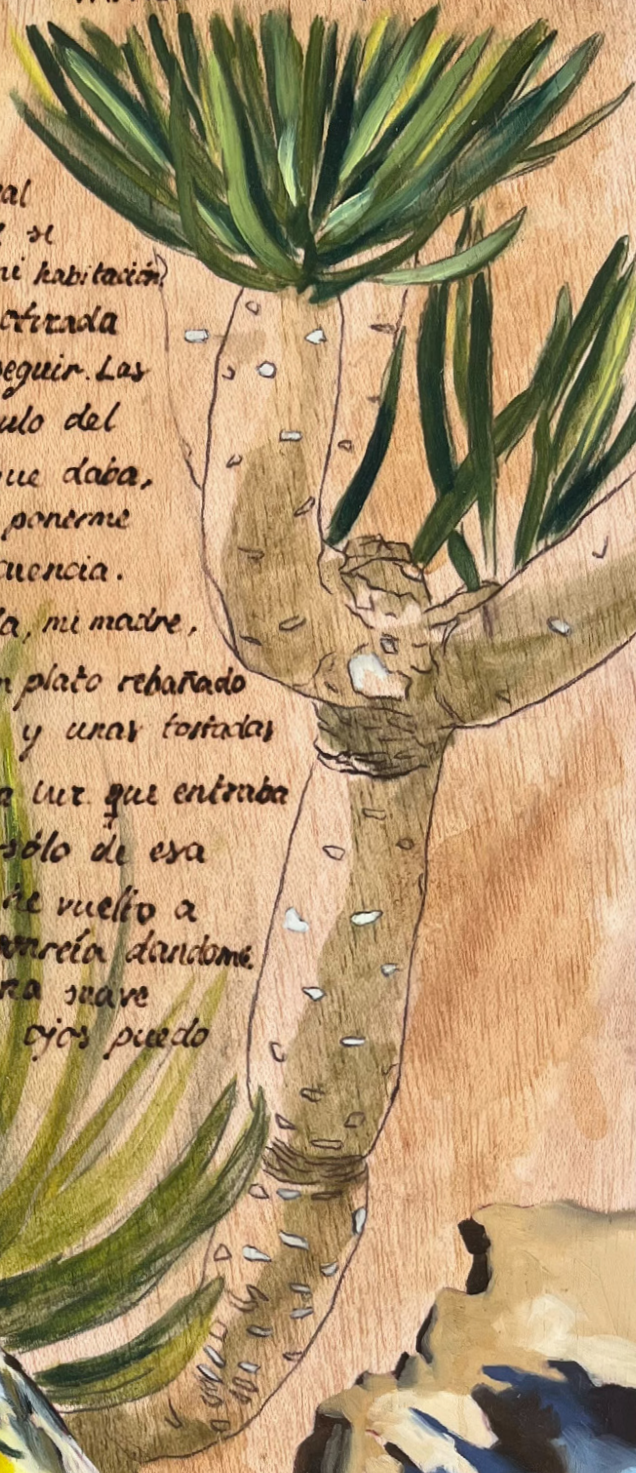 al
si
mi habitación
seguir. Las
ulo del
que daba,
ponerme
cuencia.
la, mi madre,
n plato rebañado
y unas tostadas
a luz que entraba
sólo de esa
he vuelto a
sonreía dandome
ra suave
ojos puedo